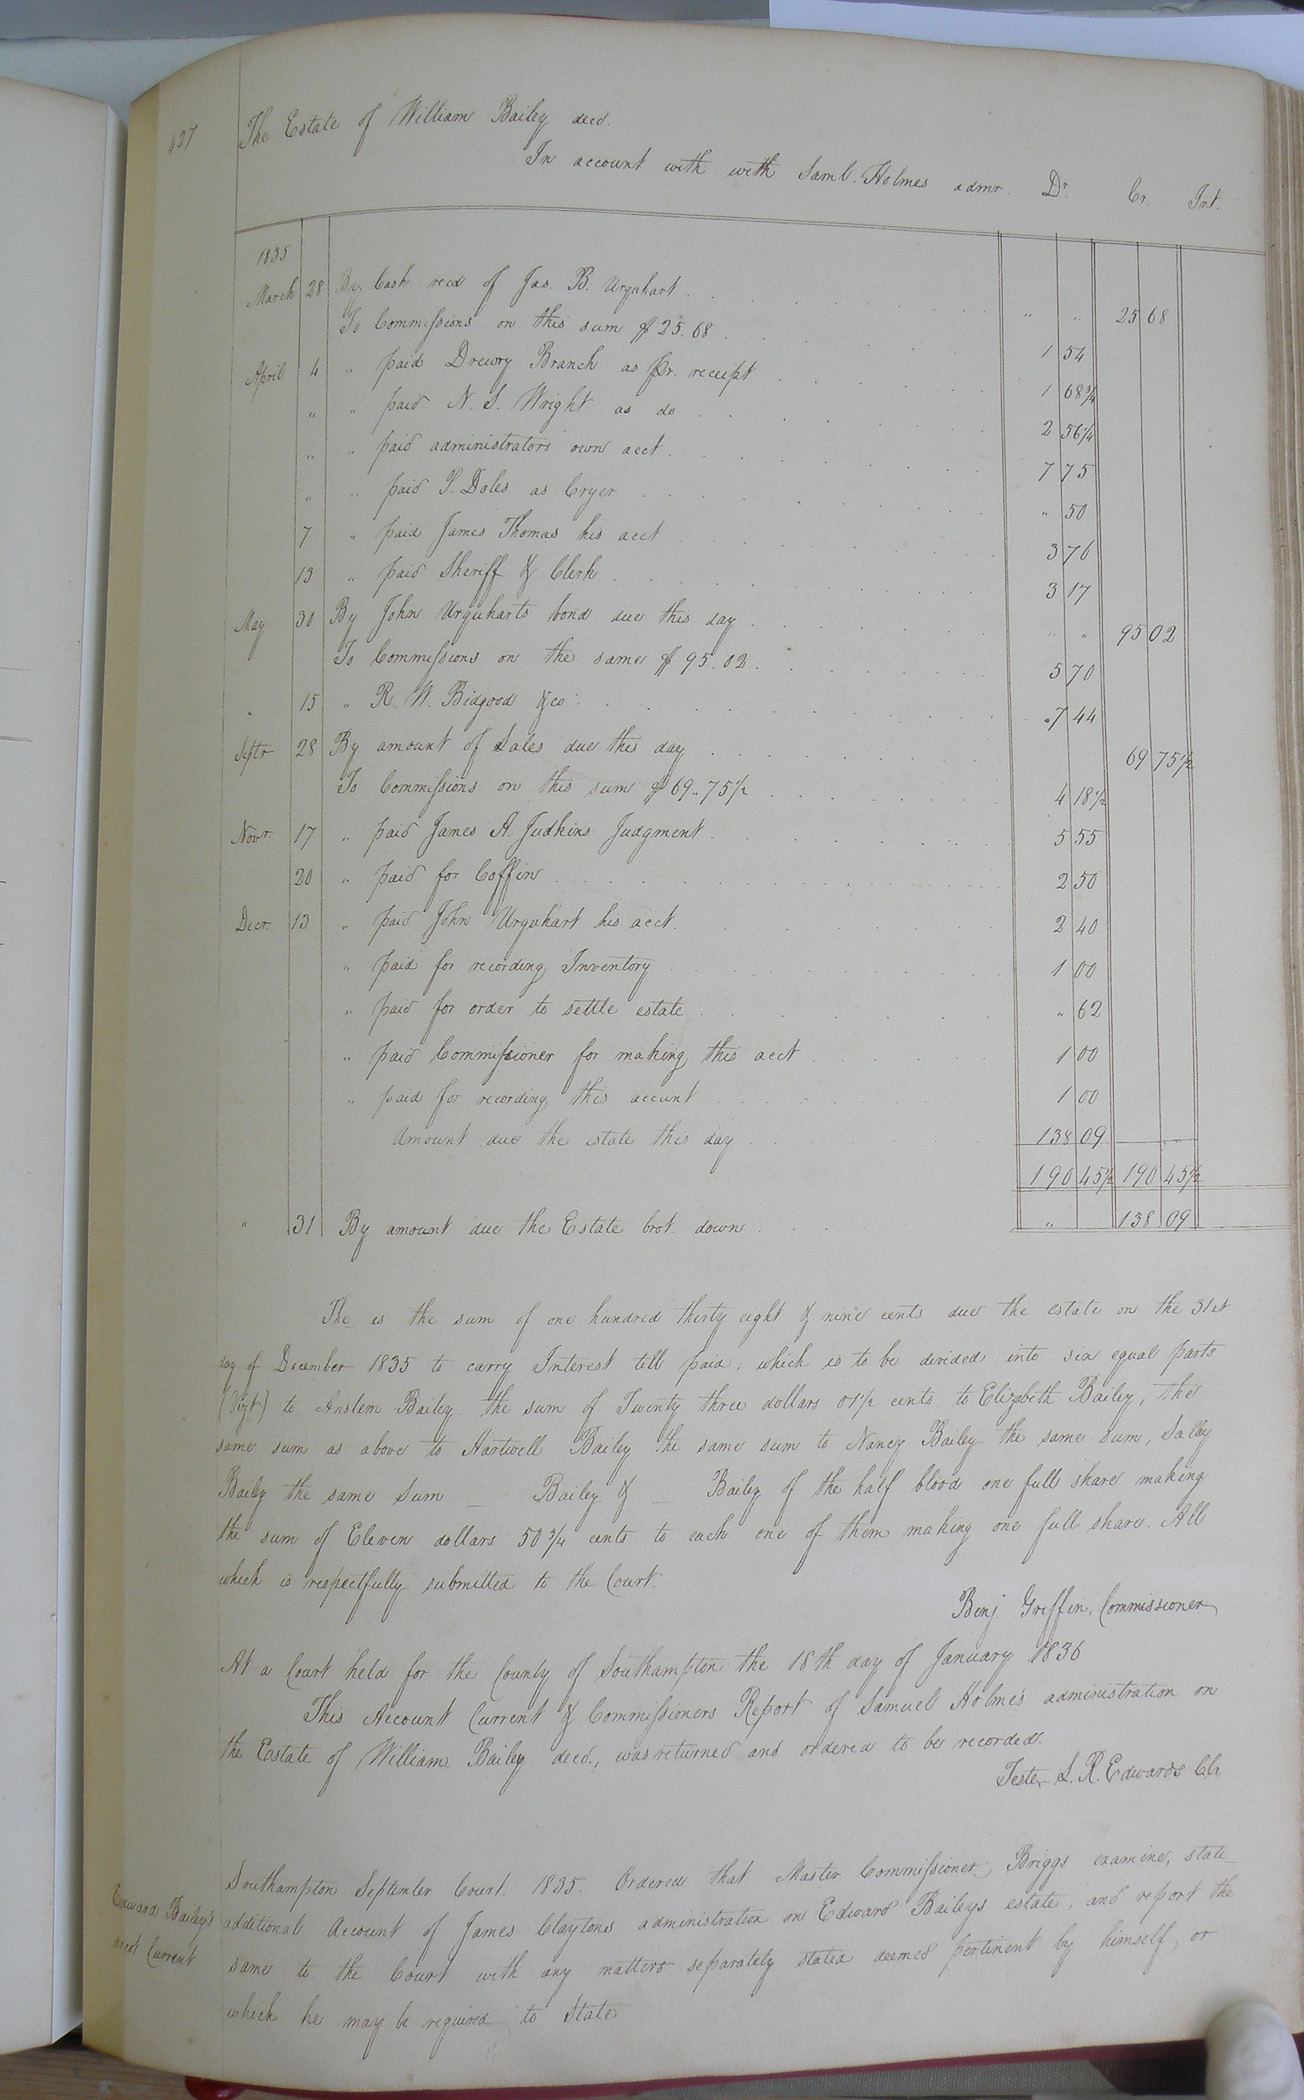 427
The Estate of William Bailey decd.
In account with with Saml. Holmes admr. Dr. Cr. Int.
1835
March 28 By Cash recd of Jas. B. Urquhart . . . " " 25 68
To Commissions on this sum $25.68 . . . 1 54
April 4 " paid Drewry Branch as pr. receipt . . . 1 68 3/4
" " paid N. S. Wright as do . . . 2 56 1/4
" " paid administrators own acct . . . 7 75
" " paid Dales as Cryer . . . " 50
7 " paid James Thomas his acct . . . 3 76
13 " paid Sheriff & Clerk . . . 3 17
May 30 By John Urquharts bond due this day . . . " " 95 02
To Commissions on the same $95.02 . . . 5 70
15 " R. W. Bidgood &co . . . 7 44
Septr 28 By amount of Sales due this day . . . 69 75 1/2
To Commissions on this sum $69..75 1/2 . . . 4 18 1/2
Novr. 17 " paid James A. Judkins Judgment . . . 5 55
20 " paid for Coffin . . . 2 50
Decr. 13 " paid John Urquhart his acct. . . . 2 40
" paid for recording Inventory . . . 1 00
" paid for order to settle estate . . . " 62
" paid Commissioner for making this acct . . . 1 00
" paid for recording this account . . . 1 00
Amount due the estate this day . . . 138 09
190 45 1/2 190 45 1/2
" 31 By amount due the Estate brot. down . . . " 138 09
The is the sum of one hundred thirty eight & nine cents due the estate on the 31st
day of December 1835 to carry Interest till paid; which is to be divided into six equal parts
(Vizt) to Anslem Bailey the sum of Twenty three dollars 01 1/2 cents to Elizabeth Bailey, the
same sum as above to Hartwell Bailey the same sum to Nancy Bailey the same sum, Salley
Bailey the same Sum _ Bailey & _ Bailey of the half blood one full share making
the sum of Eleven dollars 50 3/4 cents to each one of them making one full share. All
which is respectfully submitted to the Court.
Benj. Griffin, Commissioner
At a Court held for the County of Southampton the 18th day of January 1836
This Account Current & Commissioners Report of Samuel Holmes administration on
the Estate of William Bailey decd., was returned and ordered to be recorded.
Teste, L. R. Edwards CC.
Edward Bailey's
acct Current
Southampton September Court. 1835. Ordered that Master Commissioner Briggs examine, state
additional Account of James Claytons administration on Edward Baileys estate, and report the
same to the Court with any matters separately stated deemed pertinent by himself, or
which he may be required to State